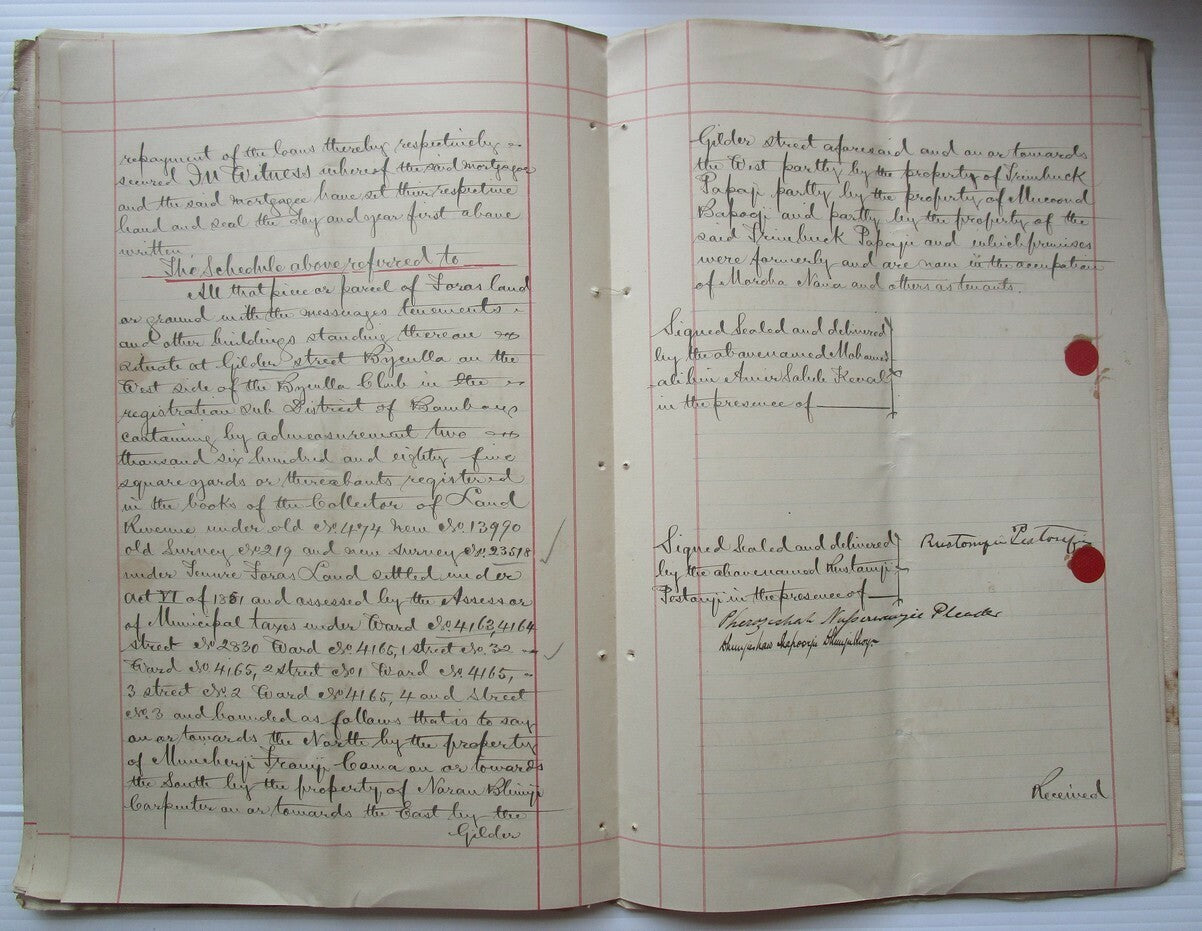 repayment of the loans thereby respectively
secured In Witness whereof the said mortgagor
and the said mortgagee have set their respective
hand and seal the day and year first above
written
The Schedule above referred to
All that piece or parcel of Foras land
or ground with the messuages tenements
and other buildings standing thereon
situate at Gilder street Byculla on the
West side of the Byculla Club in the
registration Sub District of Bombay
containing by admeasurement two
thousand six hundred and eighty five
square yards or thereabouts registered
in the books of the Collector of Land
Revenue under old No. 474 new No. 13990
old Survey No. 219 and new survey No. 23518
under Tenure Foras Land settled under
Act VI of 1851 and assessed by the Assessor
of Municipal taxes under Ward No. 4163, 4164
street No. 2830 Ward No. 4165, 1 street No. 32
Ward No. 4165, 2 street No 1 Ward No. 4165,
3 street No. 2 Ward No. 4165, 4 and street
No. 3 and bounded as follows that is to say
on or towards the North by the property
of Muncherji Framji Cama on or towards
the South by the property of Naran Bhimji
Carpenter on or towards the East by the
Gilder
Gilder street aforesaid and on or towards
the West partly by the property of Trimbuck
Papaji partly by the property of Mucoond
Bapooji and partly by the property of the
said Trimbuck Papaji and which premises
were formerly and are now in the occupation
of Moroba Nana and others as tenants.
Signed Sealed and delivered
by the abovenamed Mahomed
ali bin Amir Saheb
in the presence of
Signed Sealed and delivered
by the abovenamed Rustamji
Pestanji in the presence of
Rustomjee Pestonjee
Pherozeshah Nusserwanjee Pleader
Received